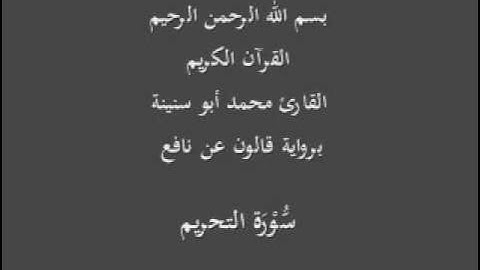 بسم الله الرحمن الرحيم
القرآن الكريم
القارئ محمد أبو سنينة
برواية قالون عن نافع
سُّوْرَة التحريم